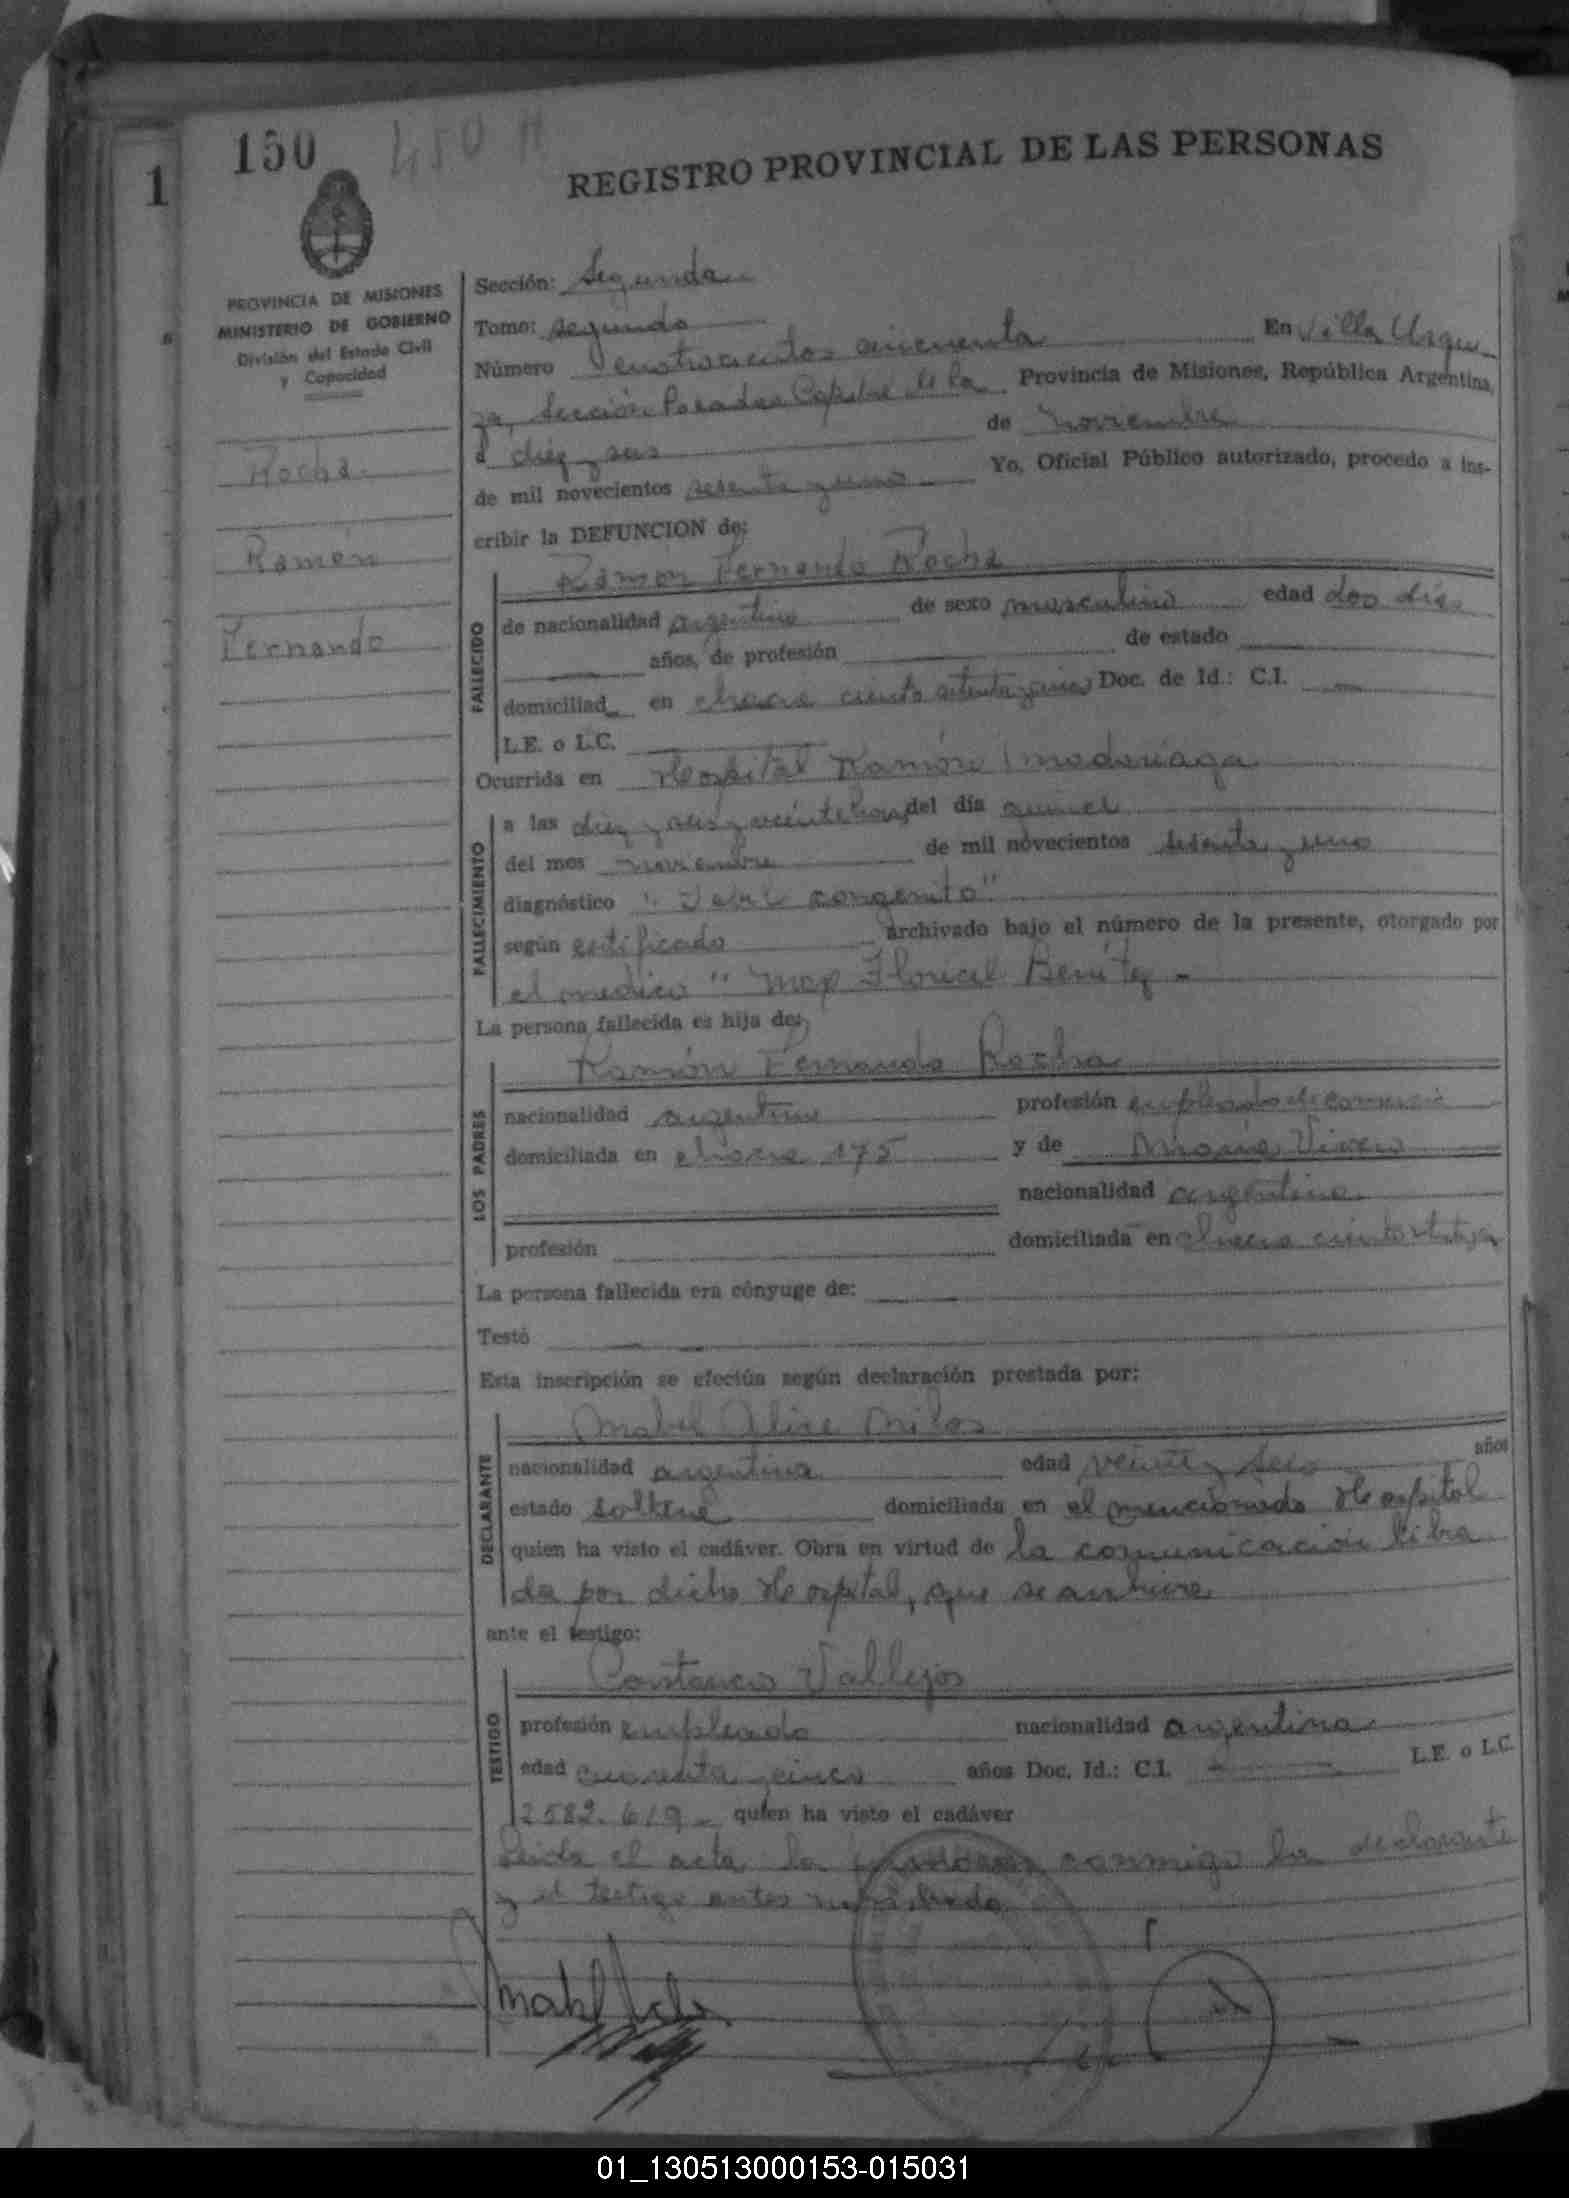 150 450 H
1
REGISTRO PROVINCIAL DE LAS PERSONAS
PROVINCIA DE MISIONES
MINISTERIO DE GOBIERNO
División del Estado Civil
y Capacidad
Rocha
Ramón
Fernando
Sección: Segunda
Tomo: segundo
Número cuatrocientos cincuenta En Villa Urqui
za, Sección Posadas Capital de la Provincia de Misiones, República Argentina,
a diez y seis de Noviembre
de mil novecientos sesenta y uno Yo, Oficial Público autorizado, procedo a ins-
cribir la DEFUNCION de:
Ramón Fernando Rocha
FALLECIDO
de nacionalidad argentino de sexo masculino edad dos días
años, de profesión de estado
domiciliad en chacra ciento setenta y cinco Doc. de Id.: C.I.
L.E. o L.C.
Ocurrida en Hospital Ramón Madariaga
FALLECIMIENTO
a las diez y seis y veinte horas del día quince
del mes noviembre de mil novecientos sesenta y uno
diagnóstico " congenito"
según certificado archivado bajo el número de la presente, otorgado por
el medico " Benítez -
La persona fallecida es hija de:
Ramón Fernando Rocha
LOS PADRES
nacionalidad argentino profesión empleado de comercio
domiciliada en chacra 175 y de María
nacionalidad argentina
profesión domiciliada en chacra ciento
La persona fallecida era cónyuge de:
Testó
Esta inscripción se efectúa según declaración prestada por:
Mabel Alice Milos
DECLARANTE
nacionalidad argentina edad veinte y seis años
estado soltera domiciliada en el mencionado Hospital
quien ha visto el cadáver. Obra en virtud de la comunicación libra
da por dicho Hospital, que se archiva
ante el testigo:
Constancio Vallejos
TESTIGO
profesión empleado nacionalidad argentina
edad cuarenta y cinco años Doc. Id.: C.I. L.E. o L.C.
2582.619 - quien ha visto el cadáver
Leida el acta la conmigo la declarante
y el testigo antes nombrado
Mabel
01_130513000153-015031